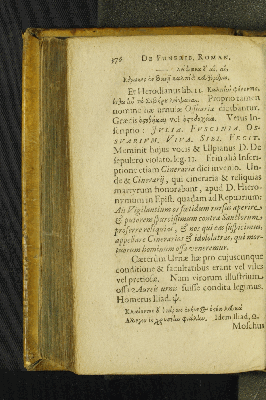 176 DE FUNERE, ROMAN.
Et Herodianus lib.
Proprio tamen
nomine hæ urnulæ Ossuaria dicebantur,
Græcis vel Vetus In-
scriptio: JULIA. FUSCINIA. OS-
SUARIUM. VIVA. SIBI. FECIT.
Meminit hujus vocis & Ulpianus D. De
sepulcro violato. leg. II. Fui alia Inscri-
ptione etiam Cineraria dici inveni. Un-
de & Cinerarii, qui cineraria & reliquias
martyrum honorabant, apud D. Hiero-
nymum in Epist. quadam ad Repairium:
Ais Vigilantium os fœtidum rursus aperire,
& putorem spurcissimum contra Sanctorum
proferre reliquias, & nos qui eas suspicimus,
appellare Cinerarios & idololatras, qui mor-
tuorum hominum ossa veneremur.
Cæterùm Urnæ hæ pro cujuscunque
conditione & facultatibus erant vel viles
vel pretiosæ. Nam virorum illustrium
ossa Aureis urnis fuisse condita legimus.
Homerus Iliad. ψ.
Idem Iliad. Ω.
Moschus